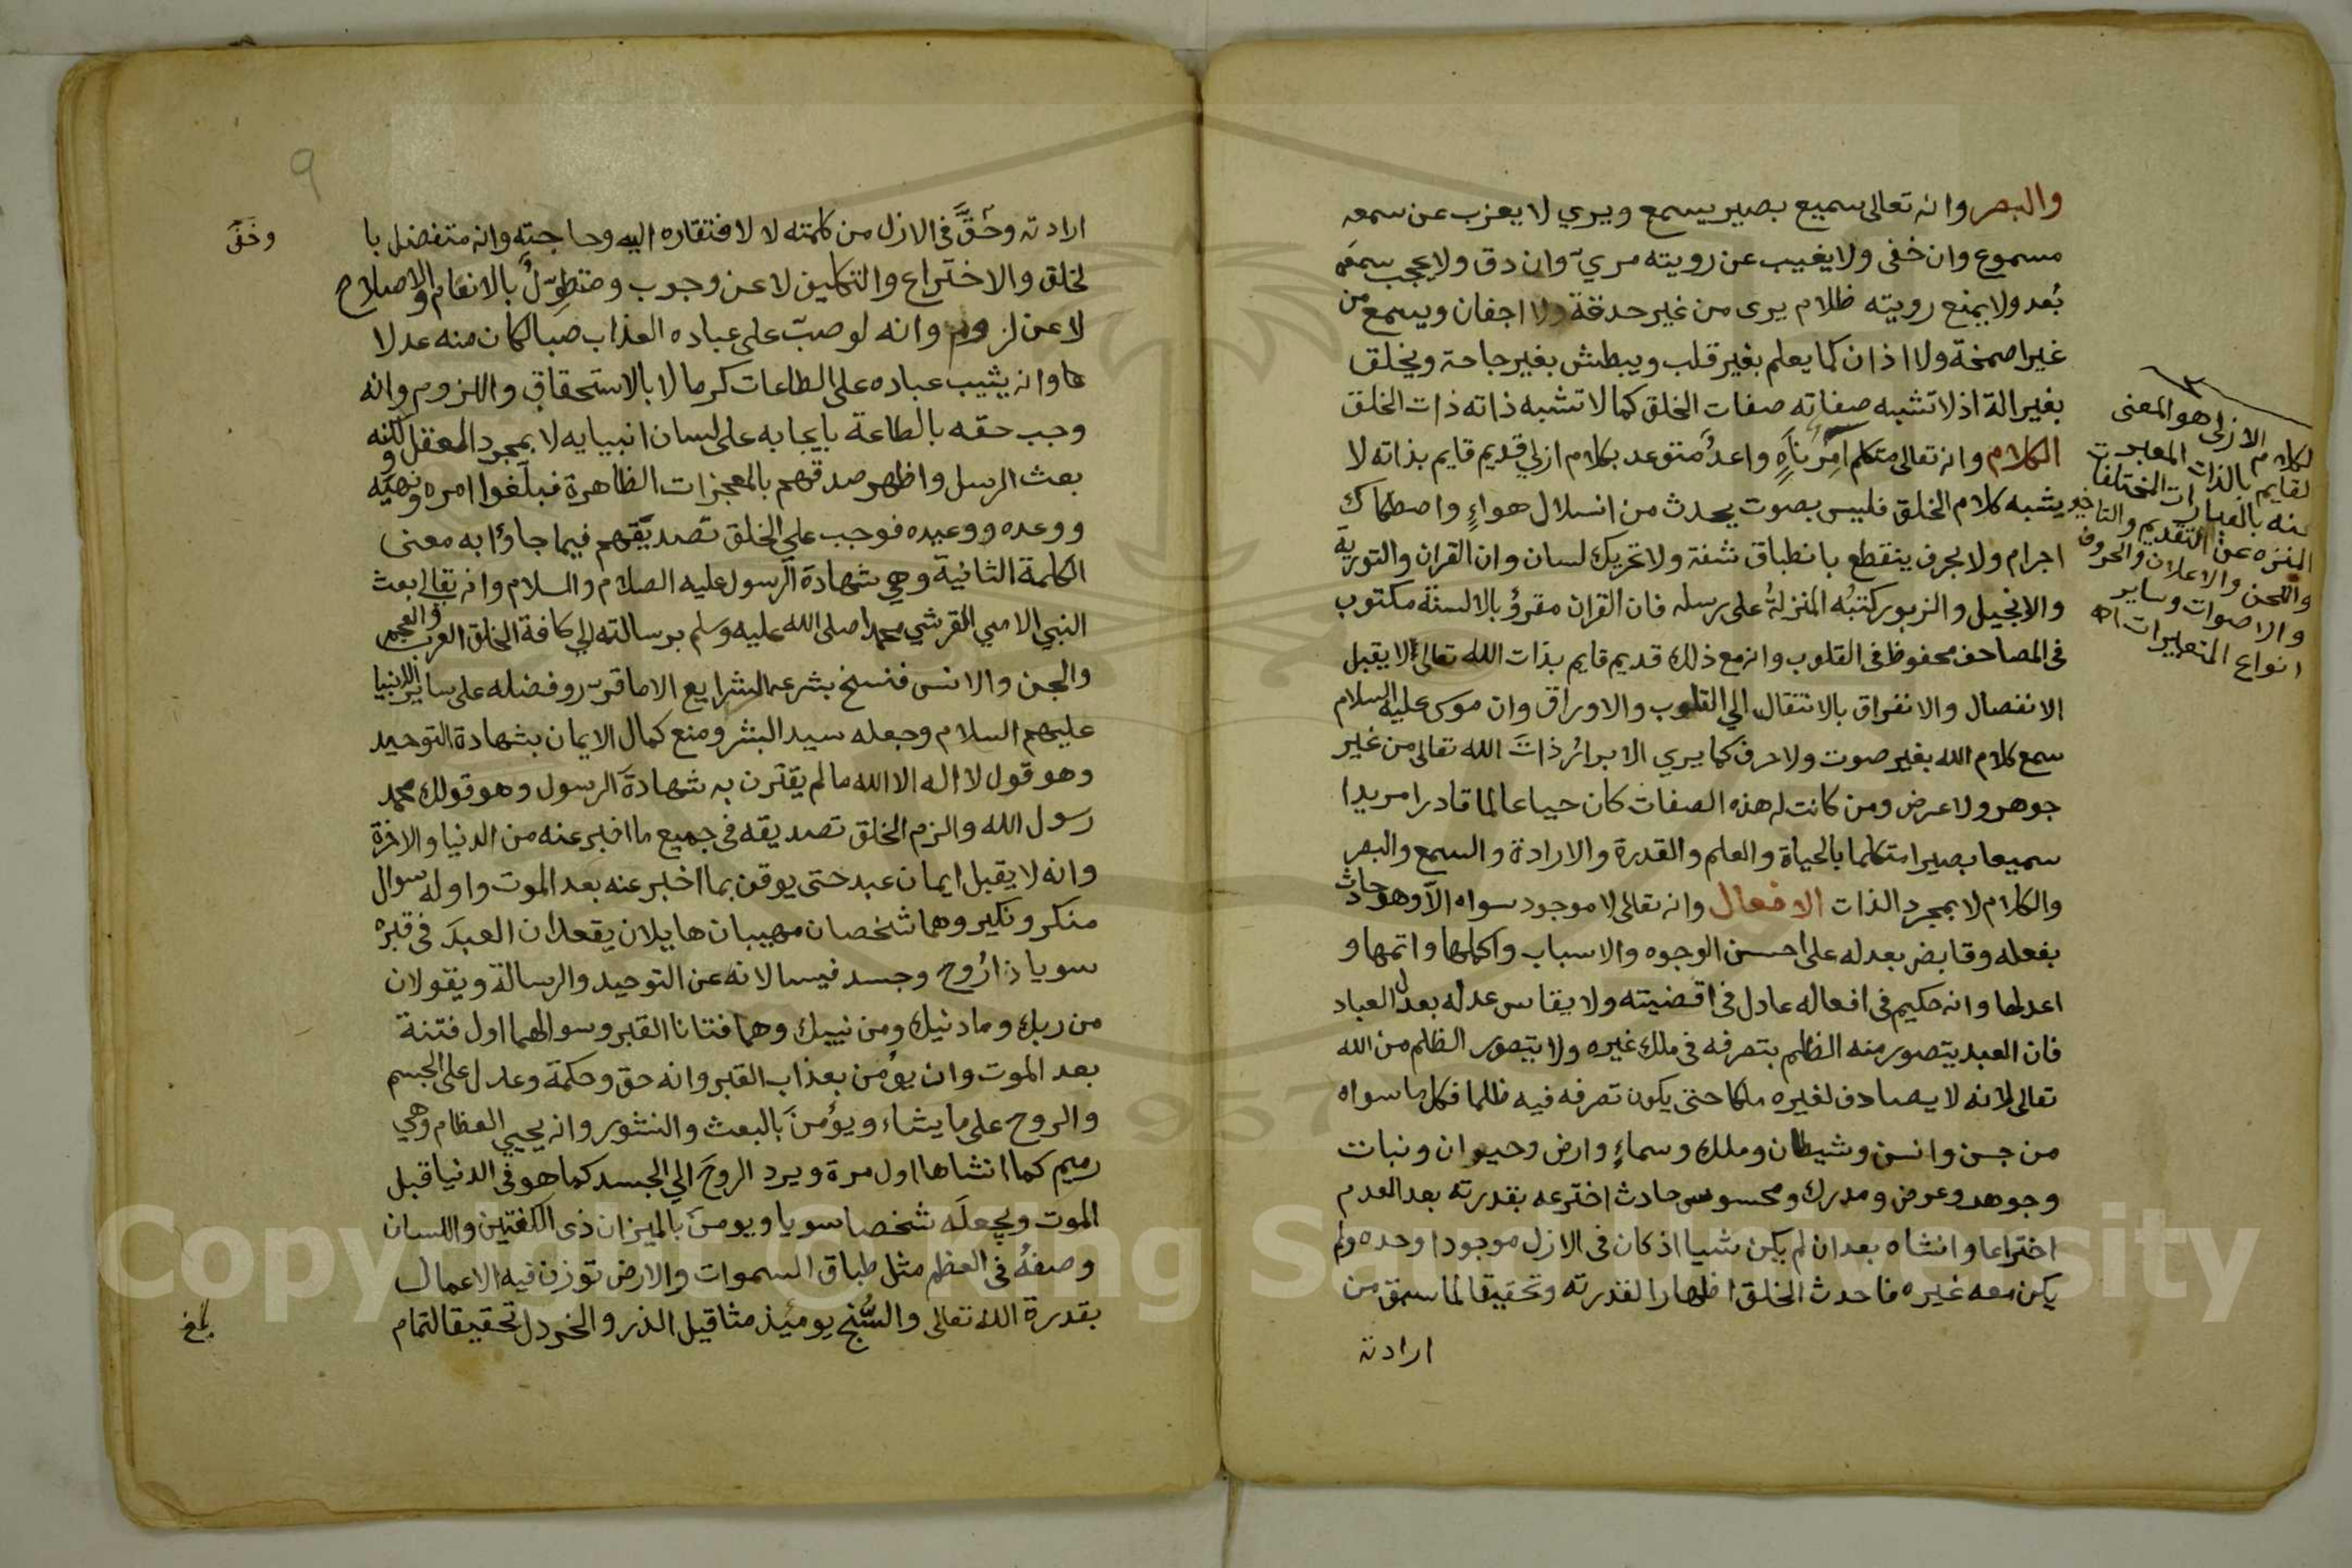 والبصر وانه تعالى سميع بصير يسمع ويري لا يعزب عن سمعه
مسموع وان خفى ولا يغيب عن رويته مريّ وان دق ولا يحجب سمعه
بُعد ولا يمنع رويته ظلام يرى من غير حدقة ولا اجفان ويسمع من
غير اصمخة ولا اذان كما يعلم بغير قلب ويبطش بغير جاحة ويخلق
بغير الة اذ لا تشبه صفاته صفات الخلق كما لا تشبه ذاته ذات الخلق
الكلام وانه تعالى متكلم امِرٌ نَاهٍ واعدٌ متوعد بكلام ازلي قديم قايم بذاته لا
يشبه كلام الخلق فليس بصوت يحدث من انسلال هواءٍ واصطكاك
اجرام ولا بحرف ينقطع بانطباق شفة ولا تحريك لسان وان القران والتورية
والانجيل والزبور كتبُه المنزلةُ على رسله فان القران مقروٌ بالالسنة مكتوب
فى المصاحف محفوظ فى القلوب وانه مع ذلك قديم قايم بذات الله تعالى لا يقبل
الانفصال والانفراق بالانتقال الي القلوب والاوراق وان موسى عليه السلام
سمع كلام الله بغير صوت ولا حرف كما يري الابرارُ ذاتَ الله تعالى من غير
جوهر ولا عرض ومن كانت له هذه الصفات كان حيا عالما قادرا مريدا
سميعا بصيرا متكلما بالحياة والعلم والقدرة والارادة والسمع والبصر
والكلام لا بمجرد الذات الافعال وانه تعالى لا موجود سواه الا وهو حادث
بفعله وقايض بعدله على احسن الوجوه والاسباب واكملها واتمها و
اعدلها وانه حكيم فى افعاله عادل فى اقضيته ولا يقاس عدله بعدل العباد
فان العبد يتصور منه الظلم بتصرفه فى ملك غيره ولا يتصور الظلم من الله
تعالى لانه لا يصادف لغيره ملكا حتى يكون تصرفه فيه ظلما فكل ما سواه
من جن وانس وشيطان وملك وسماءٍ وارض وحيوان ونبات
وجوهر وعرض ومدرك ومحسوس حادث اخترعه بقدرته بعد العدم
اختراعا وانشاه بعد ان لم يكن شيا اذ كان فى الازل موجودا وحده ولم
يكن معه غيره فاحدث الخلق اظهارا لقدرته وتحقيقا لما سبق من
ارادته
لكلام الازلى هو المعنى
لقايم بالذات المعبر
عنه بالعبارات المختلفات
المنزه عن التقديم والتاخير
واللحن والاعلان والحروف
والاصوات وساير
انواع المتغيرات اه
9
ارادته وحَقَّ فى الازل من كلمته لا لافتقاره اليه وحاجته وانه متفضل با
لخلق والاختراع والتكليف لا عن وجوب ومتطوِّلٌ بالانعام والاصلاح
لا عن لزوم وانه لو صبّ على عباده العذاب صبا لكان منه عدلا
ها وانه يثيب عباده على الطاعات كرما لا بالاستحقاق واللزوم وانه
وجب حقه بالطاعة بايجابه على لسان انبيايه لا بمجرد العقل لكنه
بعث الرسل واظهر صدقهم بالمعجزات الظاهرة فبلّغوا امره ونهيه و
ووعده ووعيده فوجب على الخلق تصديقهم فيما جاؤا به معنى
الكلمة الثانية وهي شهادة الرسول عليه الصلام والسلام وانه تعالى بعث
النبي الامي القرشي محمدا صلى الله عليه وسلم برسالته الي كافة الخلق العرب والعجم
والجن والانس فنسخ بشرعه الشرايع الا ما قرر وفضله على ساير الانبيا
عليهم السلام وجعله سيد البشر ومنع كمال الايمان بشهادة التوحيد
وهو قول لا اله الا الله ما لم يقترن به شهادة الرسول وهو قولك محمد
رسول الله والزم الخلق تصديقه فى جميع ما اخبر عنه من الدنيا والاخرة
وانه لا يقبل ايمان عبد حتى يوقن بما اخبر عنه بعد الموت واوله سوال
منكر ونكير وهما شخصان مهيبان هايلان يقعدان العبدَ فى قبره
سويا ذا رُوح وجسد فيسالانه عن التوحيد والرسالة ويقولان
من ربك وما دنيك ومن نبيك وهما فتانا القبر وسوالهما اول فتنة
بعد الموت وان يؤمن بعذاب القبر وانه حق وحكمة وعدل على الجسم
والروح على ما يشاء ويؤمنَ بالبعث والنشور وانه يحيي العظام وهي
رميم كما انشاها اول مرة ويرد الروحَ الي الجسد كما هو فى الدنيا قبل
الموت ويجعلَه شخصا سويا ويومنَ بالميزان ذى الكفتين واللسان
وصفهُ فى العظم مثل طباق السموات والارض توزن فيه الاعمال
بقدرة الله تعالى والسُّنج يومئذ مثاقيل الذر والخردل تحقيقا لتمام
وحَقَّ
بلغ
Copyright © King Saud University
1957